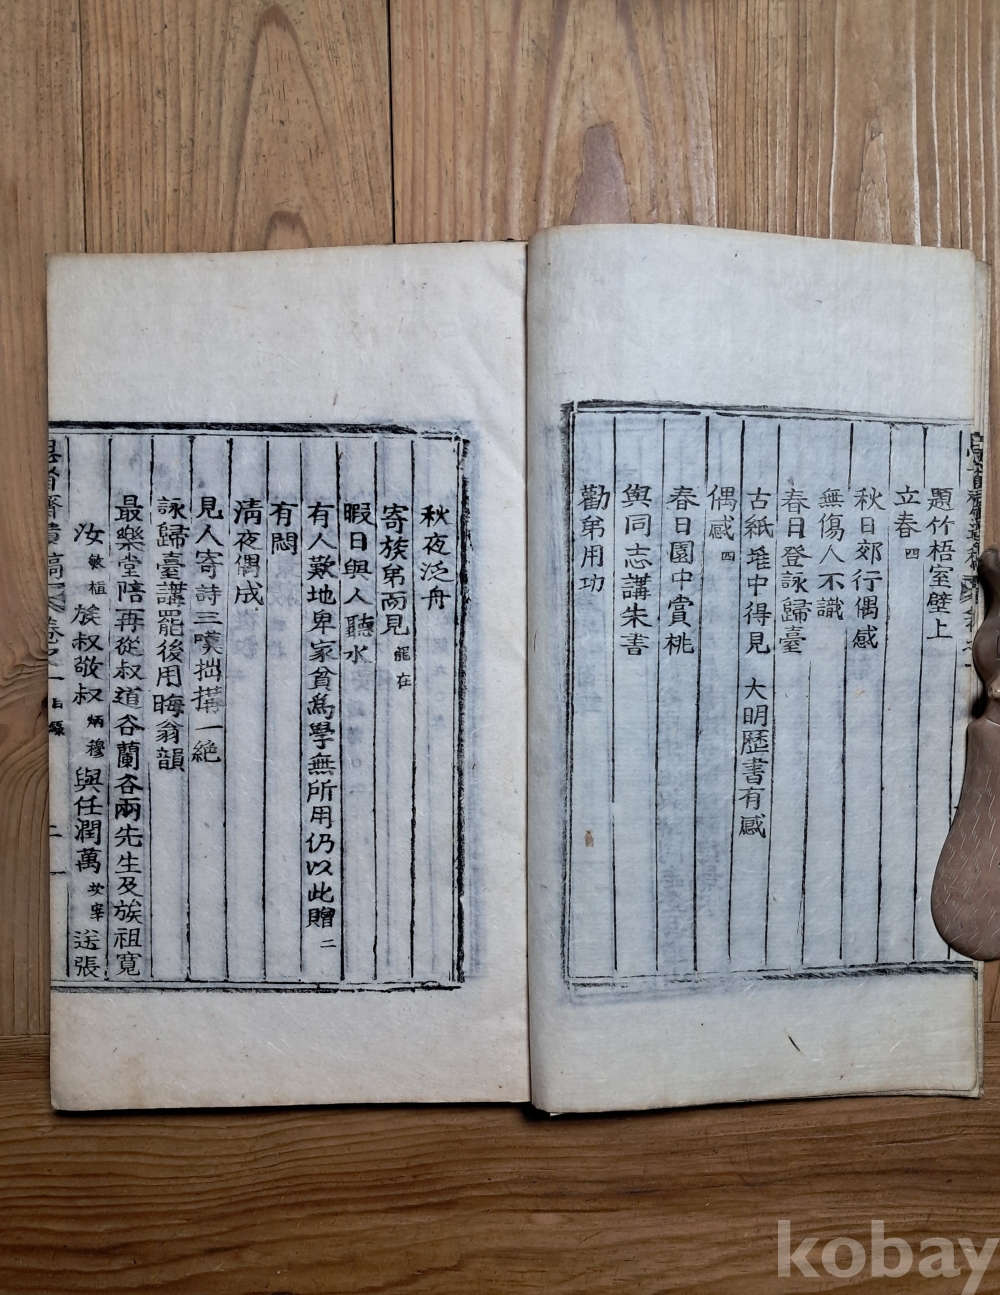 題竹梧室壁上
立春 四
秋日郊行偶感
無傷人不識
春日登詠歸臺
古紙堆中得見 大明歷書有感
偶感 四
春日園中賞桃
與同志講朱書
勸弟用功
秋夜泛舟
寄族弟而見 龍在
暇日與人聽水
有人歎地卑家貧爲學無所用仍以此贈 二
有悶
淸夜偶成
見人寄詩三嘆拙搆一絶
詠歸臺講罷後用晦翁韻
最樂堂陪再從叔道谷蘭谷兩先生及族祖寬
汝 敏植 族叔敬叔 炳穆 與任潤萬 送張
齋遺稿 卷之一 目錄 二
kobay